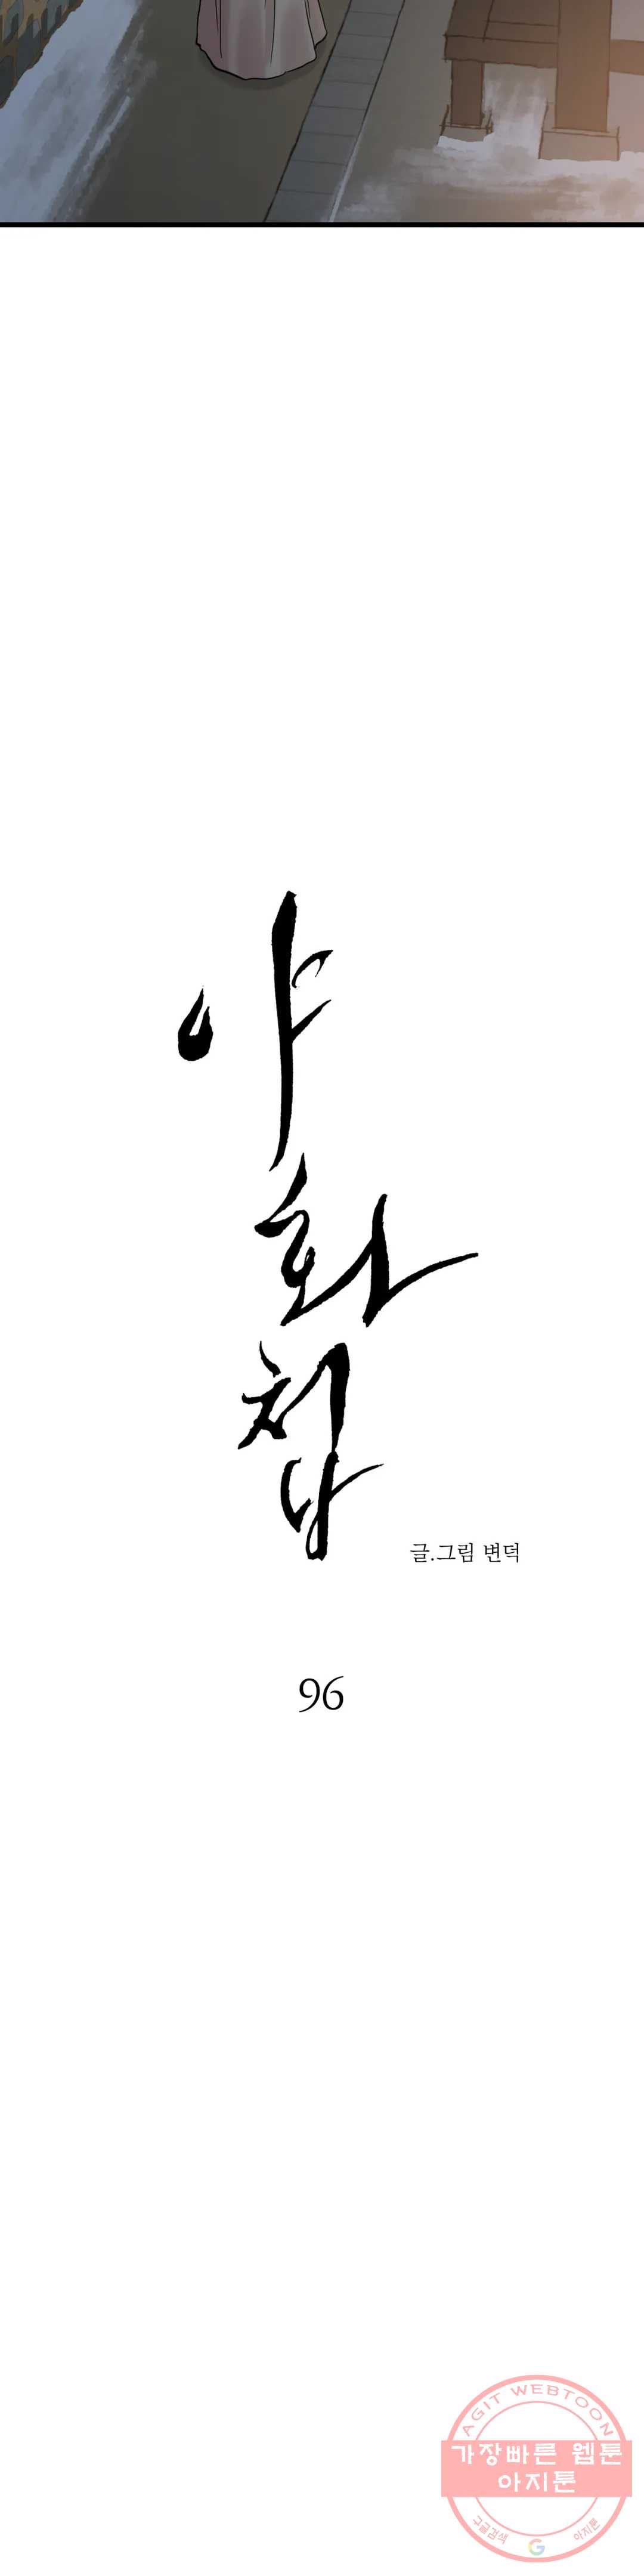 야
화
첩
글.그림 변덕
96
AGIT WEBTOON
가장빠른 웹툰
아지툰
구글검색 G 아지툰